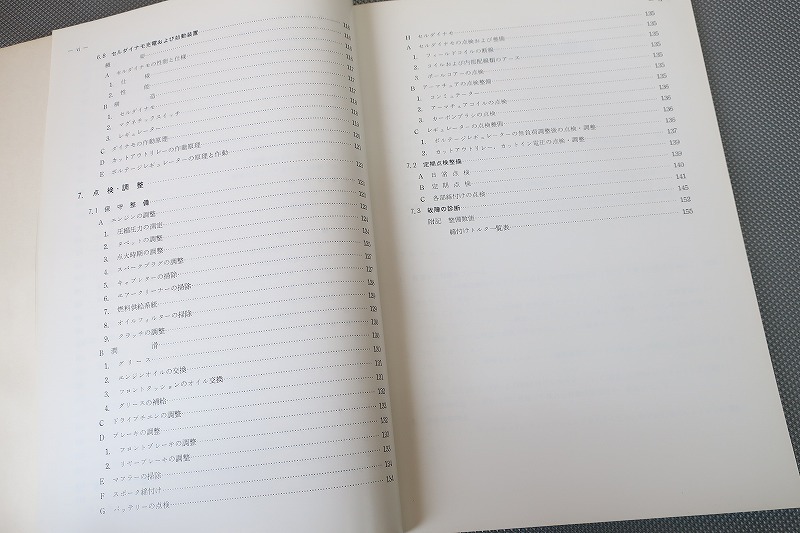 — vi —
6.6 セルダイナモ充電および始動装置 115
概 要
A セルダイナモの性能と仕様
1. 仕 様
2. 性 能
B 構 造
1. セルダイナモ
2. マグネチックスイッチ
3. レギュレーター
C ダイナモの作動原理
D カットアウトリレーの作動原理
E ボルテージレギュレーターの原理と作動
7. 点検・調整
7.1 保守整備
A エンジンの調整
1. 圧縮圧力の測定
2. タペットの調整
3. 点火時期の調整
4. スパークプラグの調整
5. キャブレターの掃除
6. エアークリーナーの掃除 127
7. 燃料供給系統
8. オイルフィルターの掃除 129
9. クラッチの調整
B 潤 滑
1. グリース 130
2. エンジンオイルの交換 130
3. フロントクッションのオイル交換 131
4. グリースの補給 131
C ドライブチエンの調整 132
D ブレーキの調整 132
1. フロントブレーキの調整 132
2. リヤーブレーキの調整
E マフラーの掃除
F スポーク締付け 134
G バッテリーの点検 134
H セルダイナモ 135
A セルダイナモの点検および整備 135
1. フィールドコイルの断線 135
2. コイルおよび内部配線類のアース 135
3. ポールコアーの点検 135
B アーマチュアの点検整備 135
1. コンミュテーター 135
2. アーマチュアコイルの点検 136
3. カーボンブラシの点検 136
C レギュレーターの点検整備 136
1. ボルテージレギュレーターの無負荷調整後の点検・調整 136
2. カットアウトリレー、カットイン電圧の点検・調整 137
7.2 定期点検整備 139
A 日常点検 139
B 定期点検 140
C 各部締付けの点検 141
7.3 故障の診断 145
付記 整備数値 152
締付けトルク一覧表 155